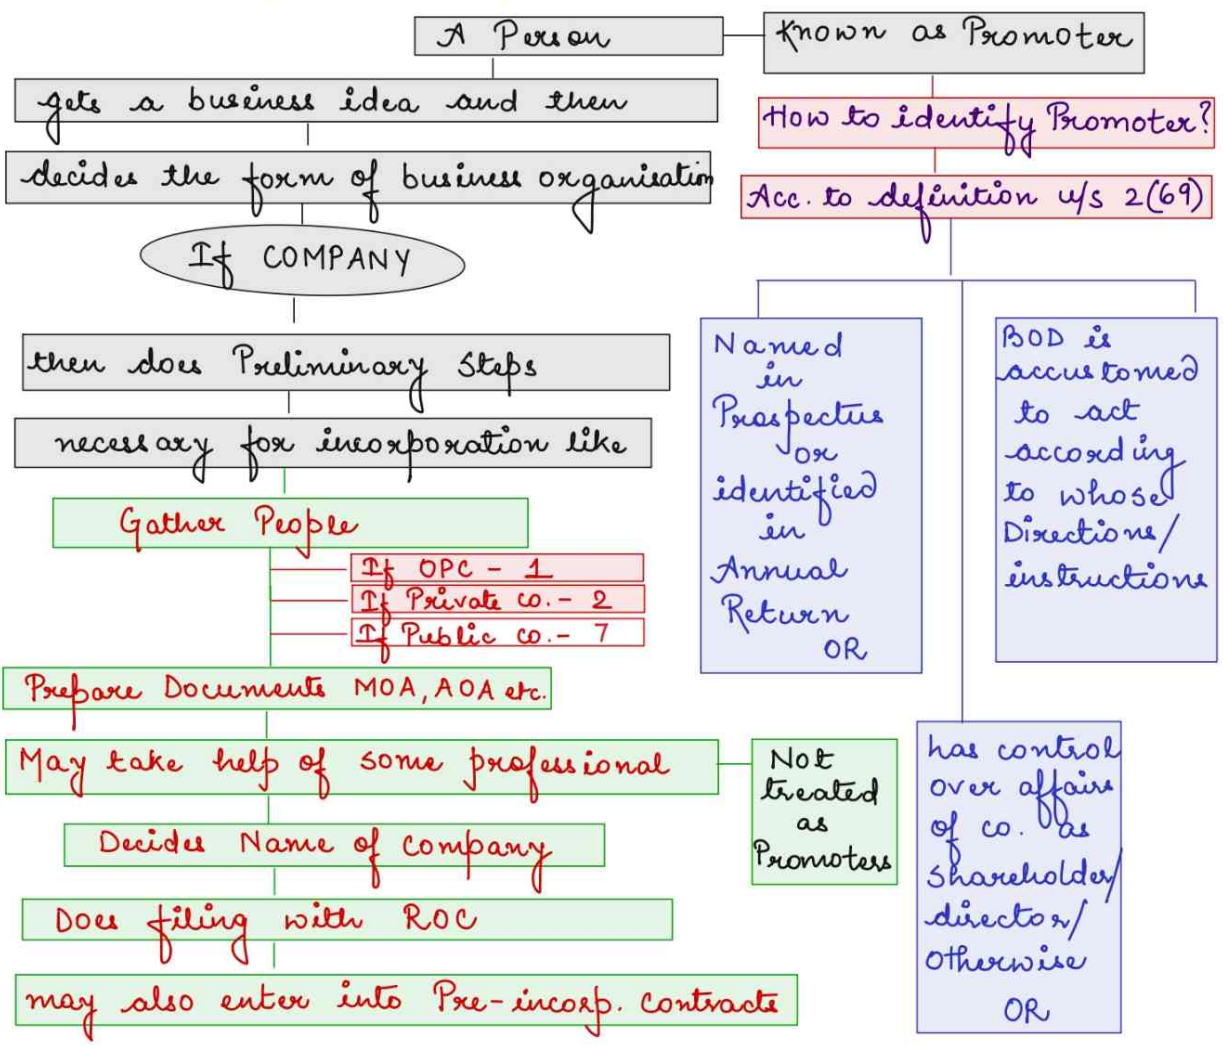 A Person
Known as Promoter
gets a business idea and then
decides the form of business organisation
If COMPANY
then does Preliminary Steps
necessary for incorporation like
Gather People
If OPC - 1
If Private co. - 2
If Public co. - 7
Prepare Documents MOA, AOA etc.
May take help of some professional
Not
treated
as
Promoters
Decides Name of company
Does filing with ROC
may also enter into Pre-incorp. contracts
How to identify Promoter?
Acc. to definition u/s 2(69)
Named
in
Prospectus
or
identified
in
Annual
Return
OR
has control
over affairs
of co. as
Shareholder/
director/
Otherwise
OR
BOD is
accustomed
to act
according
to whose
Directions/
instructions